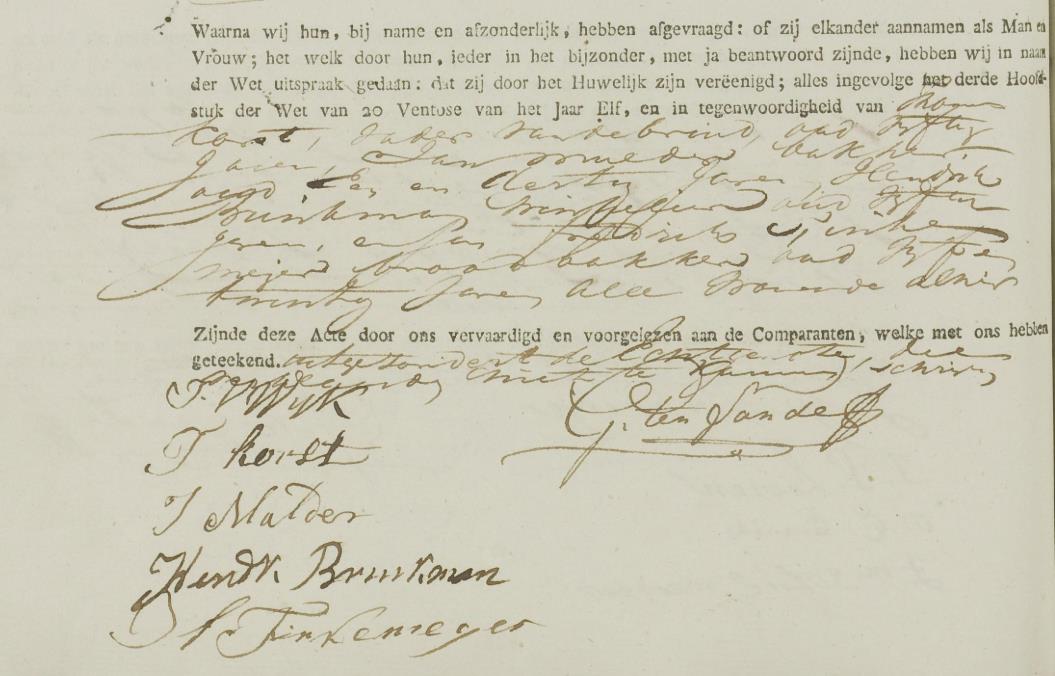 Waarna wij hun, bij name en afzonderlijk, hebben afgevraagd: of zij elkander aannamen als Man en
Vrouw; het welk door hun, ieder in het bijzonder, met ja beantwoord zijnde, hebben wij in naam
der Wet uitspraak gedaan: dat zij door het Huwelijk zijn vereenigd; alles ingevolge het derde Hoofd-
stuk der Wet van 20 Ventose van het Jaar Elf, en in tegenwoordigheid van
Korst, Vader van de bruid, oud Vyftig
Jaren, Jan mulder bakker
oud en dertig Jaren Hendrik
Brinkman oud
Jaren, en Jan Finke
meijer broodbakker oud Vyf en
twintig Jaren Alle woonende alhier
Zijnde deze Acte door ons vervaardigd en voorgelezen aan de Comparanten, welke met ons hebben
geteekend. uitgezondert de die
niet te kunnen schrijven
J. V Wyk
G. ten Sande
T korst
J Mulder
Hendk. Brinkman
Finkemeyer